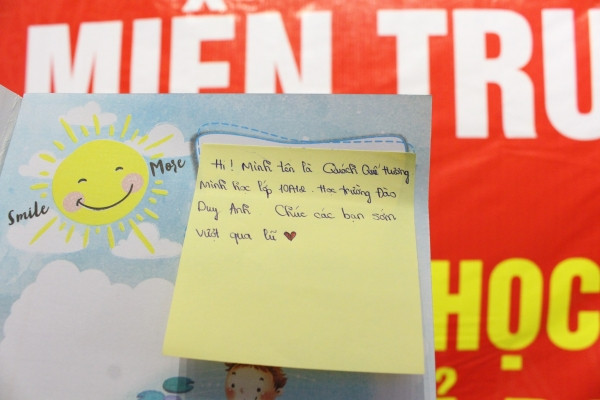 MIỀN TRU
Smile
More
Hi! Mình tên là Quách Quế Hương
Mình học lớp 10A12. Học trường Đào
Duy Anh Chúc các bạn sớm
vượt qua lũ ❤
HỌC